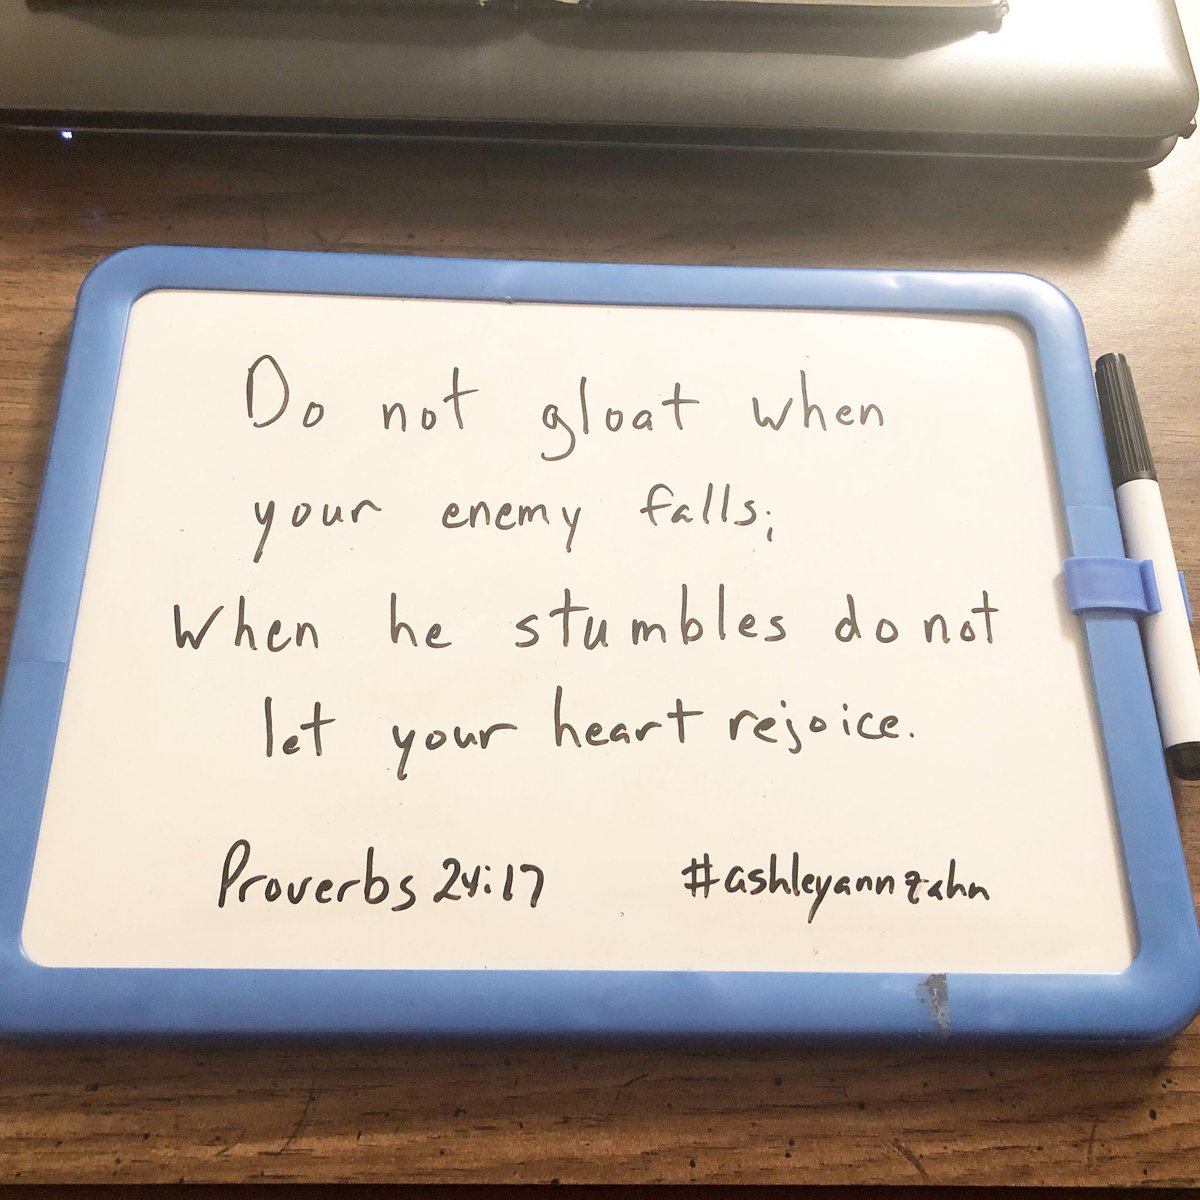 Do not gloat when
your enemy falls;
When he stumbles do not
let your heart rejoice.
Proverbs 24:17 #ashleyannzahn